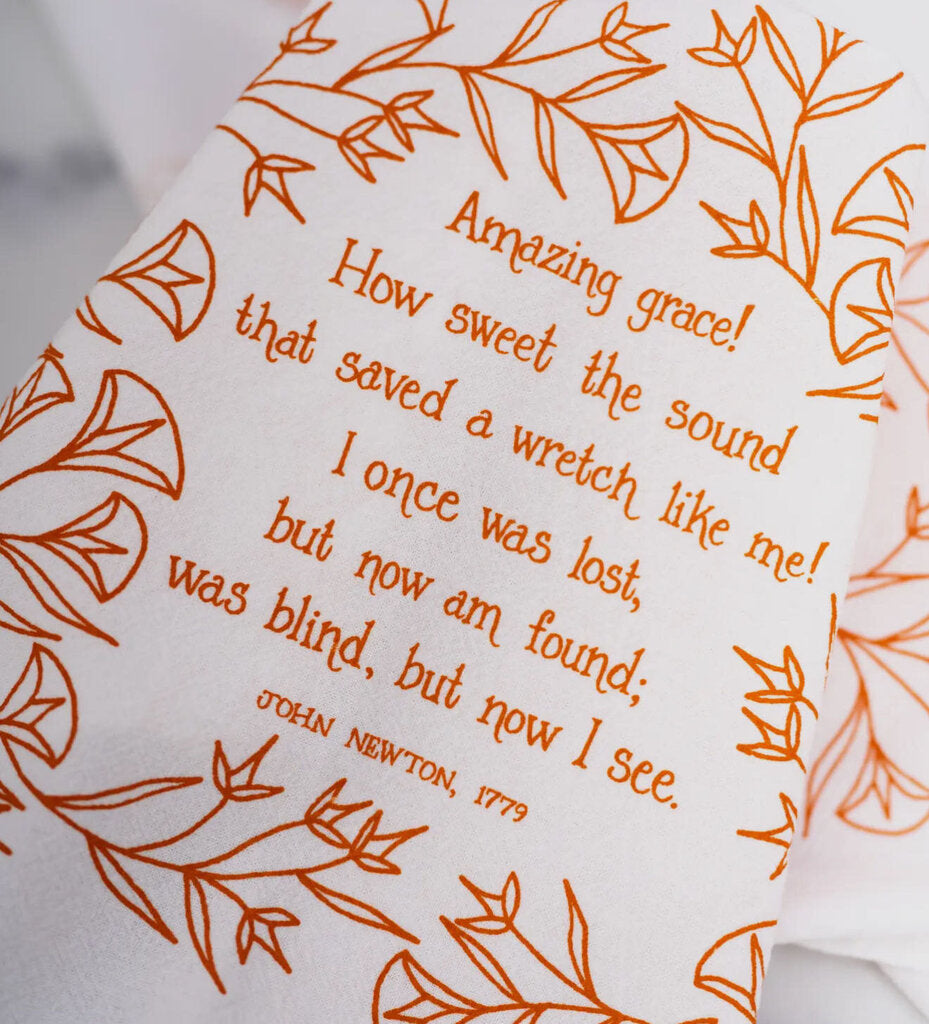 Amazing grace!
How sweet the sound
that saved a wretch like me!
I once was lost,
but now am found;
was blind, but now I see.
JOHN NEWTON, 1779